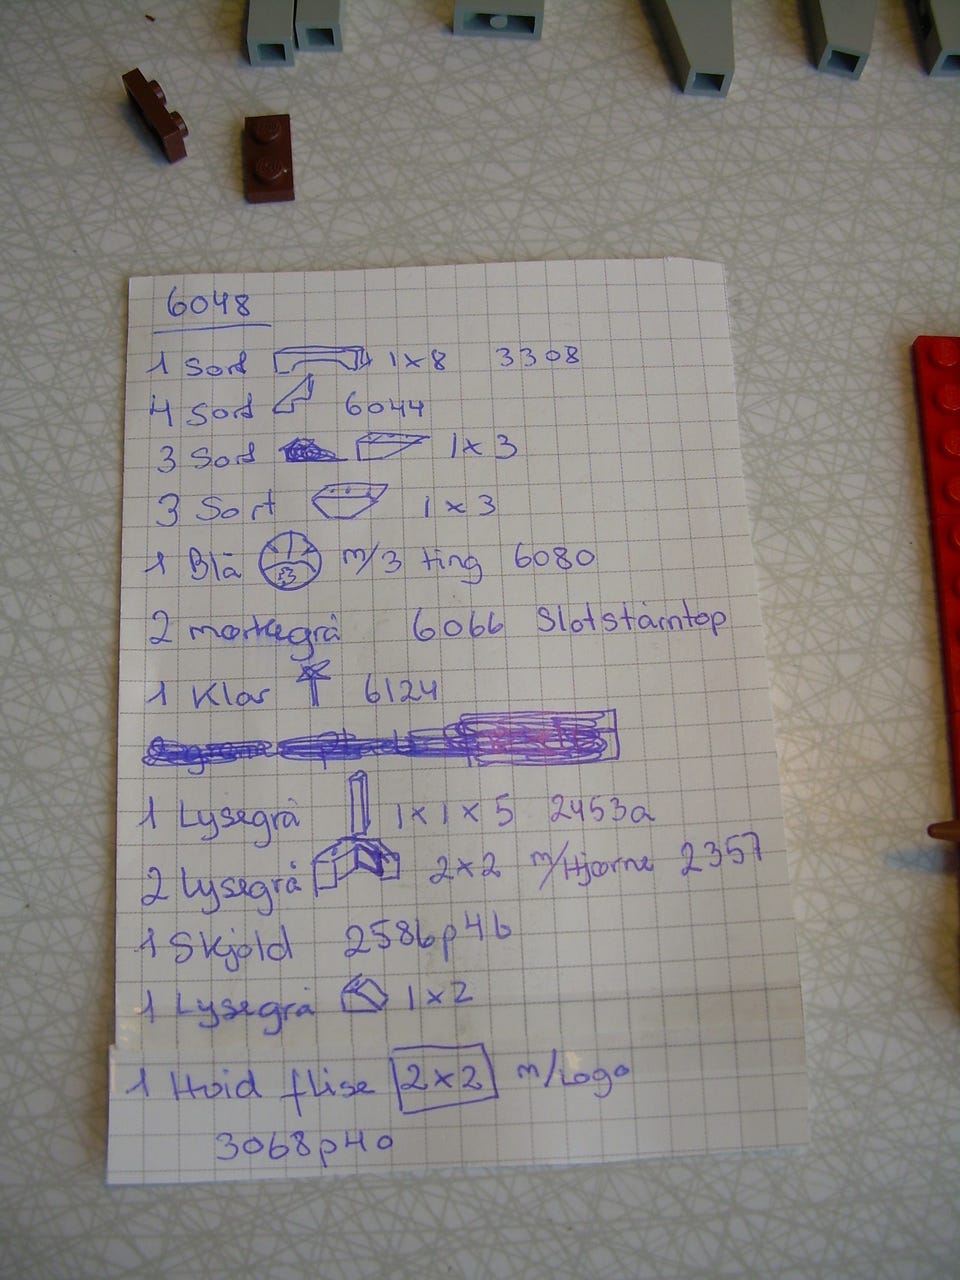 6048
1 Sort 1x8 3308
4 Sort 6044
3 Sort 1x3
3 Sort 1x3
1 Blå m/3 ting 6080
2 mørkegrå 6066 Slotstårntop
1 Klar 6124
1 Lysegrå 1x1x5 2453a
2 Lysegrå 2x2 m/Hjørne 2357
1 Skjold 2586p4b
1 Lysegrå 1x2
1 Hvid flise 2x2 m/Logo
3068p40